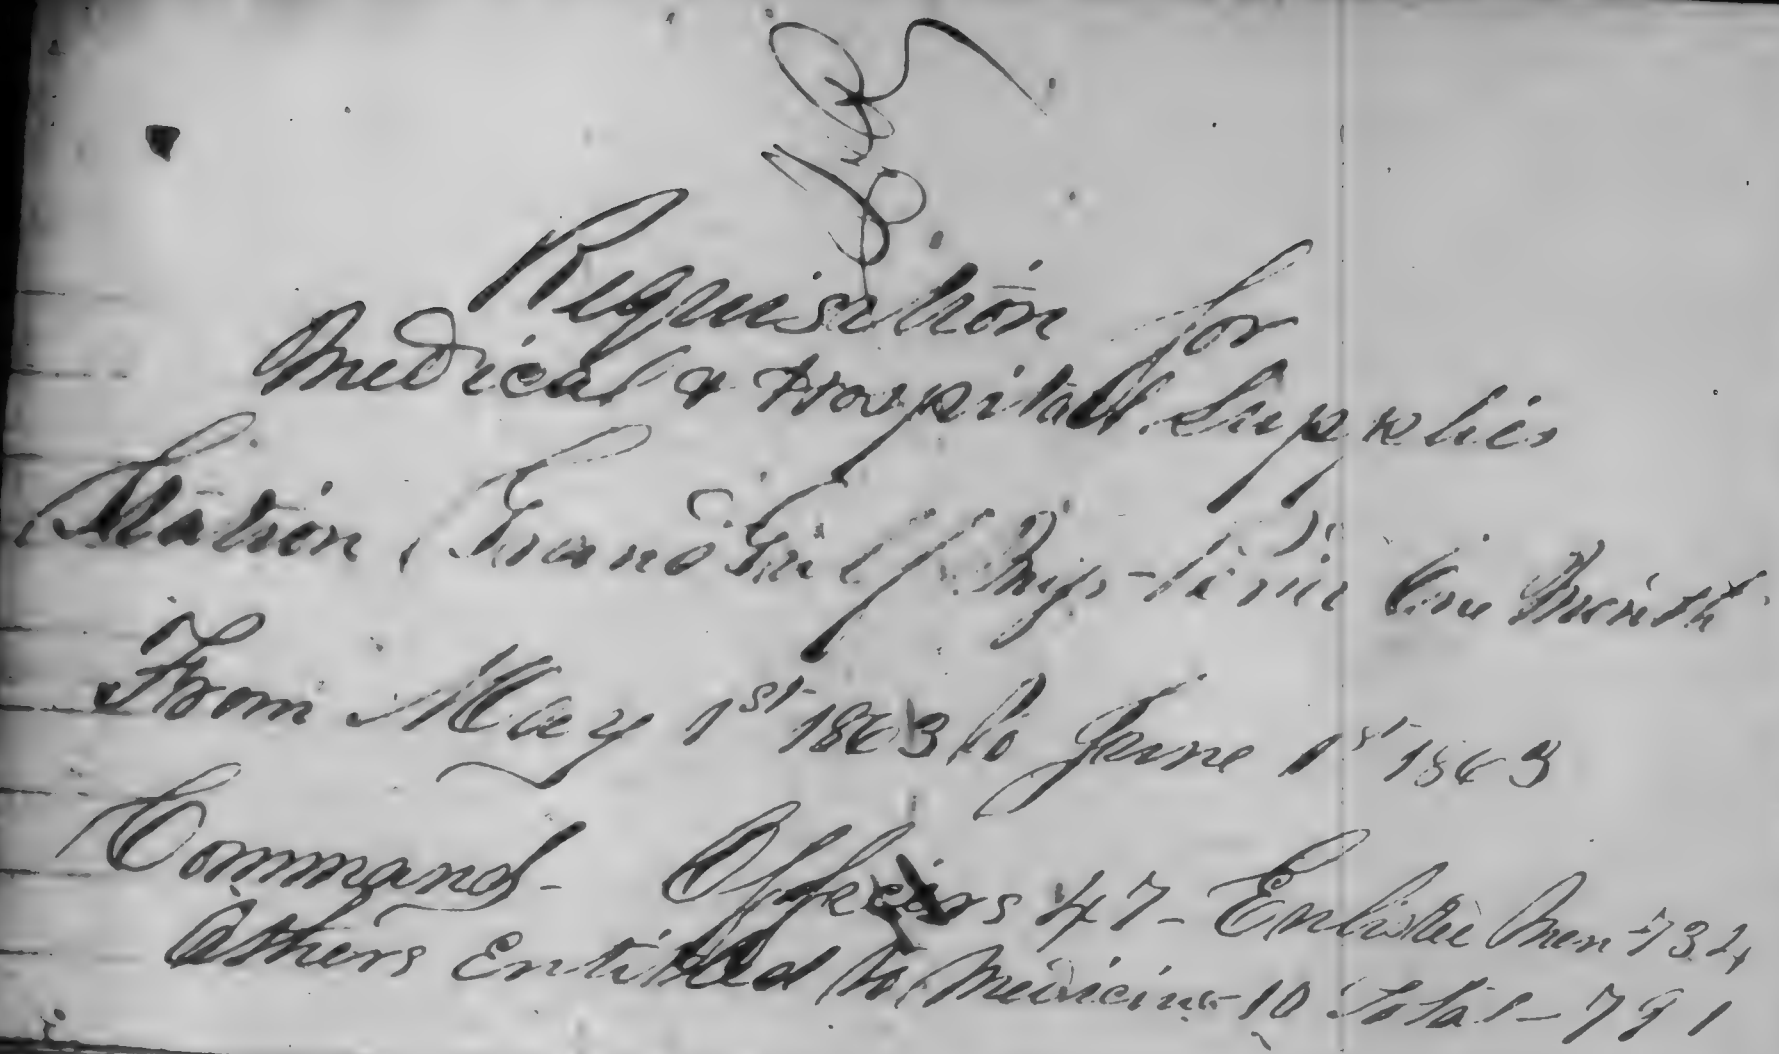 Requisition for
Medical & Hospital Supplies
Station, Grand Gulf Miss - time One Month
From May 1st 1863 to June 1st 1863
Command - Officers 47 - Enlisted Men 734
Others Entitled to Medicine 10 Total - 791